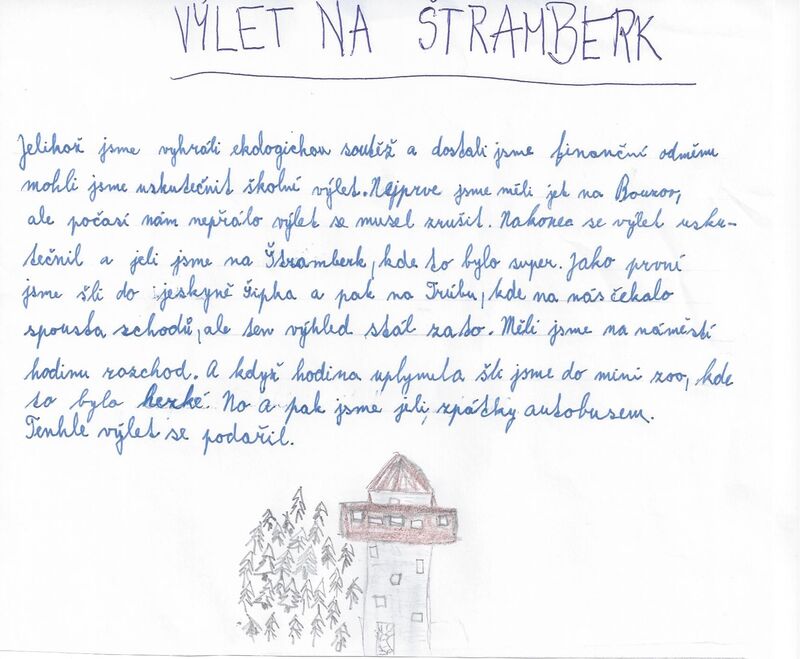 VÝLET NA ŠTRAMBERK
Jelihož jsme vyhráli ekologickou soutěž a dostali jsme finanční odměnu
mohli jsme uskutečnit školní výlet. Nejprve jsme měli jet na Bouzov,
ale počasí nám nepřálo výlet se musel zrušit. Nakonec se výlet usku-
tečnil a jeli jsme na Štramberk, kde to bylo super. Jako první
jsme šli do jeskyně Šipka a pak na Trúbu, kde na nás čekalo
spousta schodů, ale ten výhled stál zato. Měli jsme na náměstí
hodinu rozchod. A když hodina uplynula šli jsme do mini zoo, kde
to bylo hezké. No a pak jsme jeli zpátky autobusem.
Tenhle výlet se podařil.